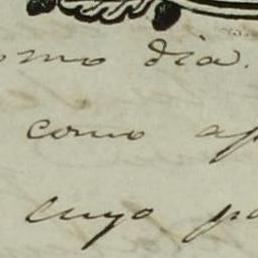 omo dia.
como ap
cuyo pa